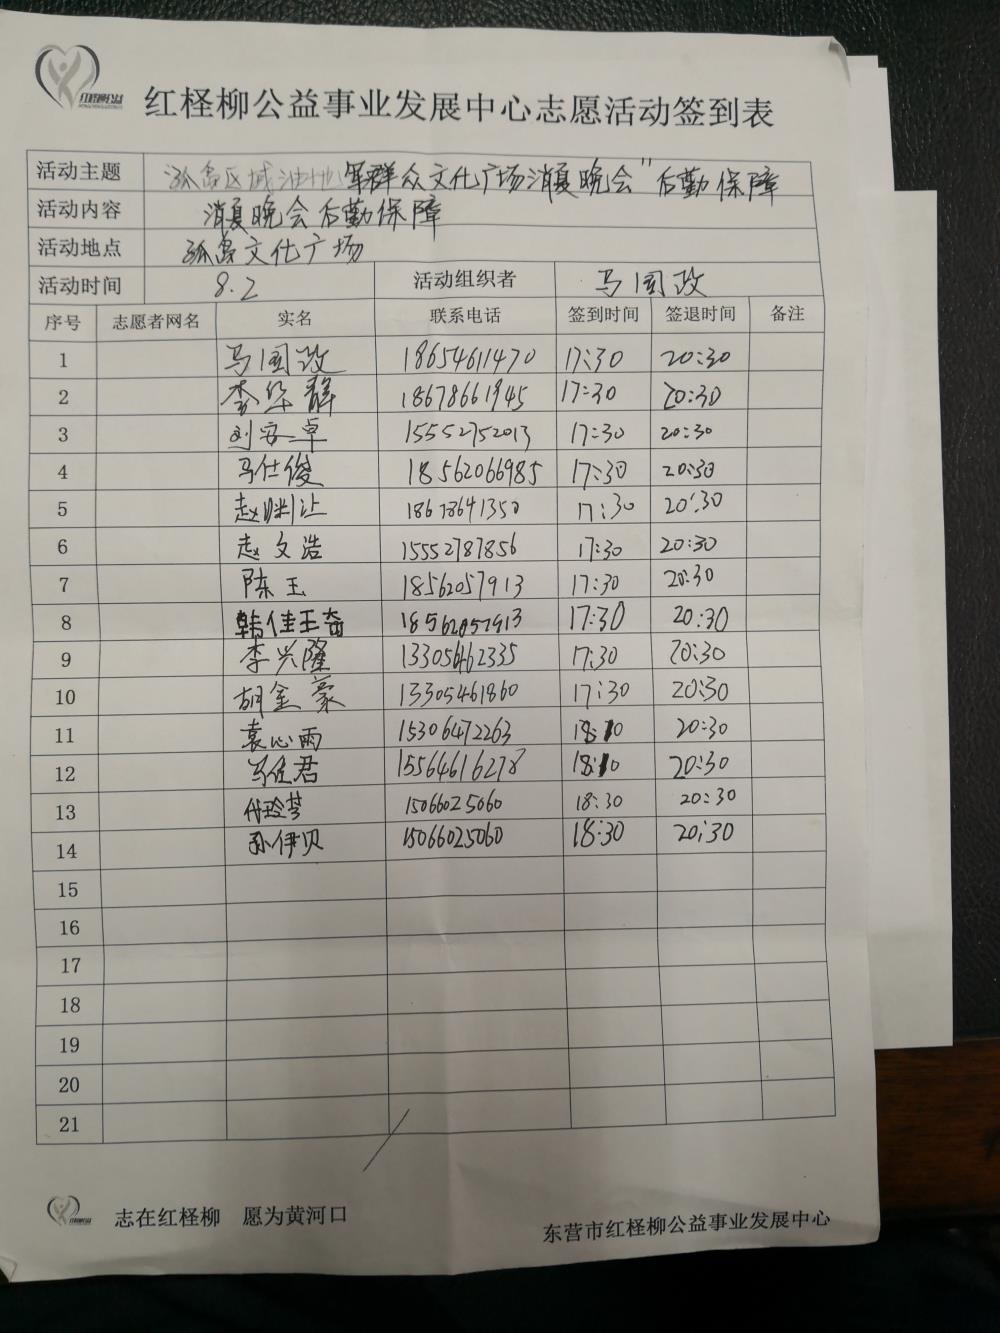 红柽柳公益
红柽柳公益事业发展中心志愿活动签到表
活动主题 孤岛区域油地军群众文化广场消夏晚会"后勤保障
活动内容 消夏晚会后勤保障
活动地点 孤岛文化广场
活动时间 8.2 活动组织者 马国政
序号 志愿者网名 实名 联系电话 签到时间 签退时间 备注
1 马国政 18654611470 17:30 20:30
2 李华静 18678661945 17:30 20:30
3 刘安卓 15552752013 17:30 20:30
4 马仕俊 18562066985 17:30 20:30
5 赵 18678641350 17:30 20:30
6 赵文浩 15552787856 17:30 20:30
7 陈玉 18562057913 17:30 20:30
8 韩佳 18562057913 17:30 20:30
9 李兴隆 13305462335 17:30 20:30
10 胡金豪 13305461860 17:30 20:30
11 袁心雨 15306472263 18:10 20:30
12 马佳君 15564616278 18:10 20:30
13 代玲芝 15066025060 18:30 20:30
14 孙伊贝 15066025060 18:30 20:30
15
16
17
18
19
20
21
志在红柽柳 愿为黄河口
东营市红柽柳公益事业发展中心